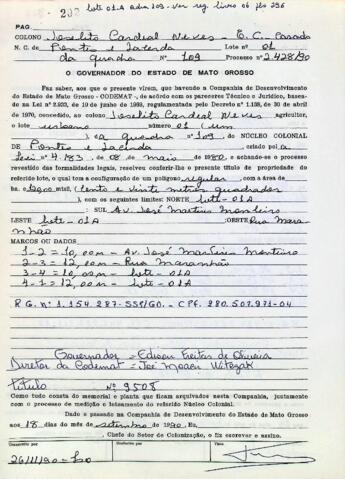 292 lote 01.A adra 109. Ver reg. livro 06 fls 296
PAG.
COLONO Joselito Cardial Neves - E.C. Casado
N. C. de Pontes e Lacerda Lote nº 01
da quadra nº 109 Processo nº 2.428/90
O GOVERNADOR DO ESTADO DE MATO GROSSO
Faz saber, aos que o presente virem, que havendo a Companhia de Desenvolvimento
do Estado de Mato Grosso - CODEMAT-, de acordo com os pareceres Técnico e Jurídico, baseados
na Lei nº 2.923, de 19 de junho de 1969, regulamentada pelo Decreto nº 1.138, de 30 de abril
de 1970, concedido, ao colono Joselito Cardial Neves agricultor,
o lote urbano nº 01 (um)
da quadra nº 109, do NÚCLEO COLONIAL
de Pontes e Lacerda criado pela
Lei nº 4.183 de 08 de maio 1980, e achando-se o processo
revestido das formalidades legais, resolveu conferir-lhe o presente título de propriedade do
referido lote, o qual tem a configuração de um polígono regular com a área de
120,00 mts2. (Cento e vinte metros quadrados
), com os seguintes limites: NORTE lote-01A
SUL Av. José Martins Monteiro
LESTE lote-01A OESTE Rua Mara-
nhão
MARCOS OU DADOS
1-2 = 10,00m - Av. José Martins Monteiro
2-3 = 12,00m - Rua Maranhão
3-4 = 10,00m - lote-01A
4-1 = 12,00m - lote-01A
R.G. nº 1.154.287-SSP/GO. - CPF. 280.507.971-04
Governador = Edison Freitas de Oliveira
Diretor da Codemat = José
Título nº 9508
Como tudo consta do memorial e planta que ficam arquivados nesta Companhia, juntamente
com o processo de medição e loteamento do referido Núcleo Colonial.
Dado e passado na Companhia de Desenvolvimento do Estado de Mato Grosso
aos 18 dias do mês de setembro de 1990. Eu,
, Chefe do Setor de Colonização, o fiz escrever e assino.
Visto
26/11/90